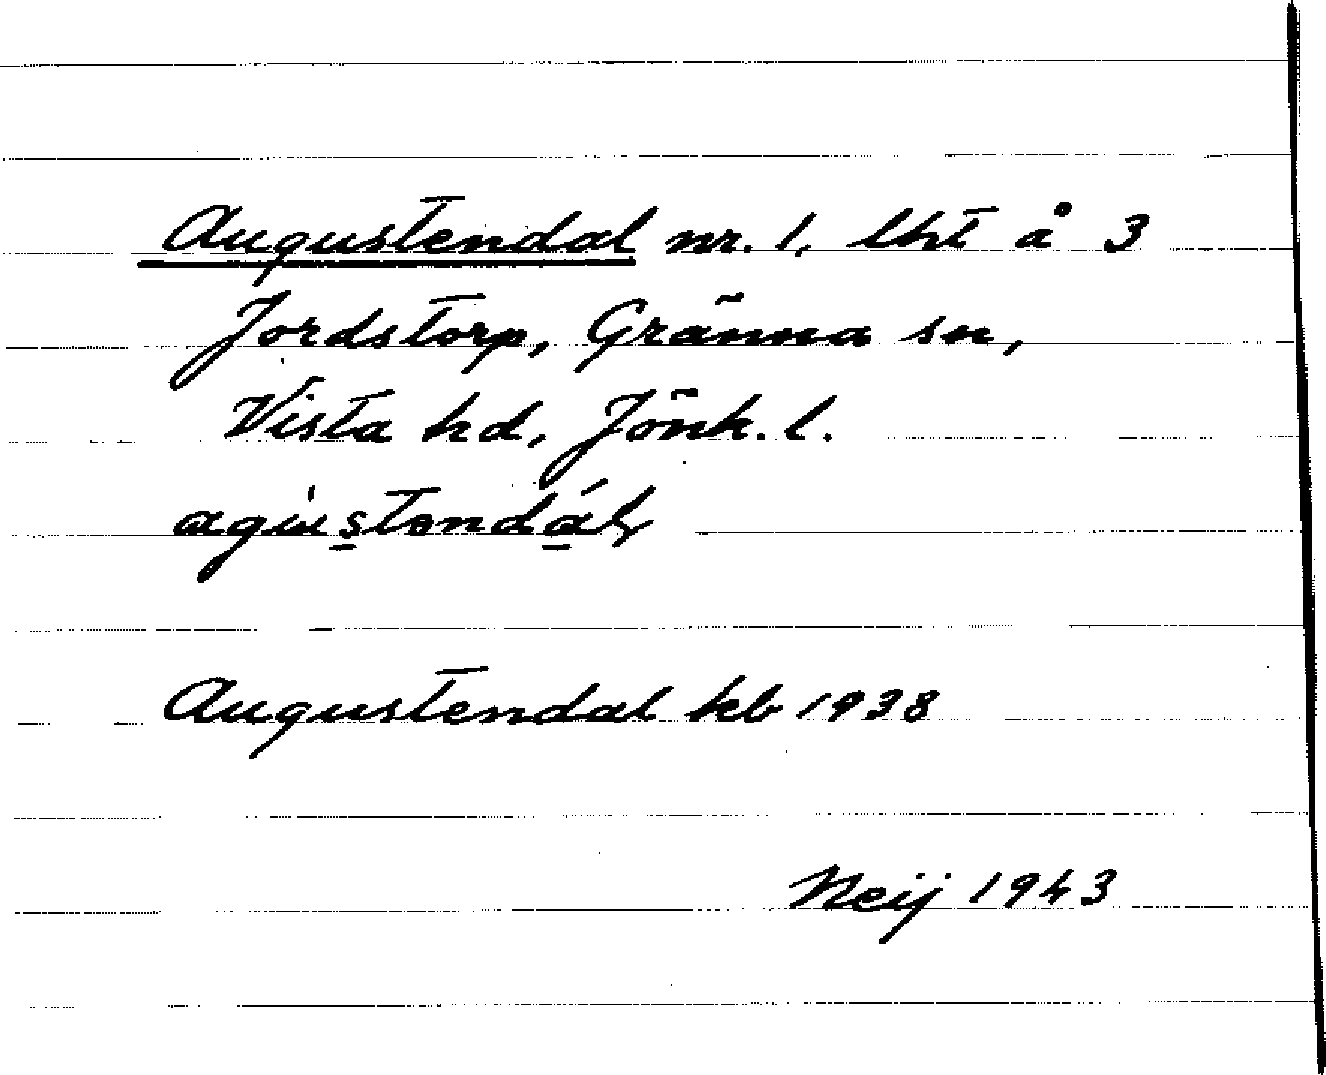 Augustendal nr. 1, lht å 3
Jordstorp, Gränna sn,
Vista hd, Jönk. l.
Augustendal kb 1938
Neij 1943